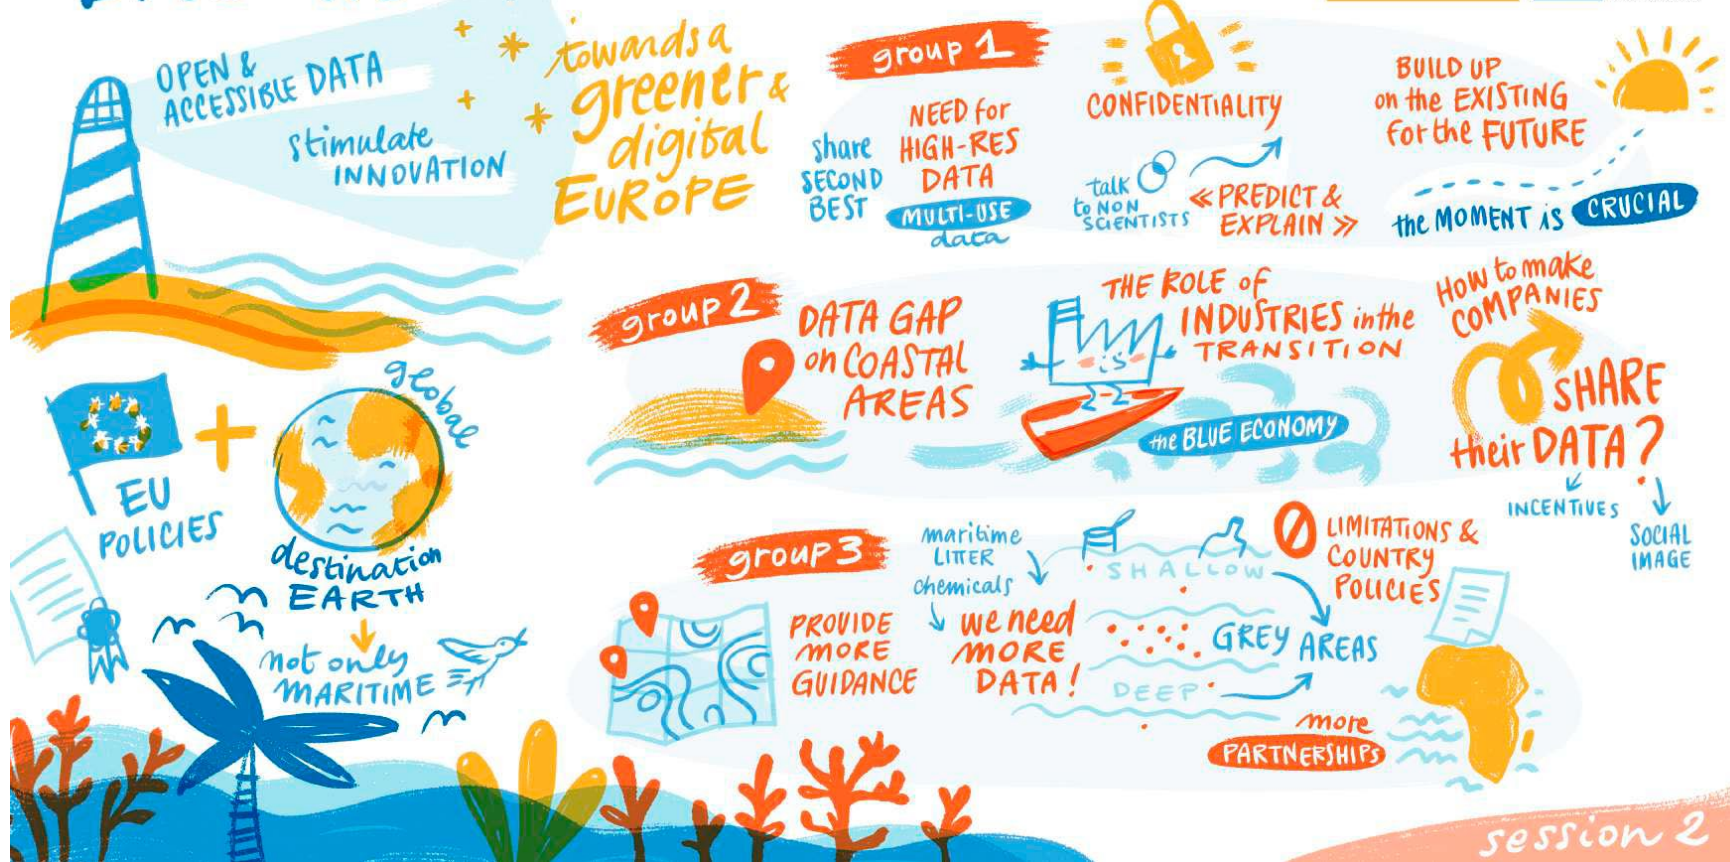 OPEN &
ACCESSIBLE DATA
stimulate
INNOVATION
towards a
greener &
digital
EUROPE
EU
POLICIES
global
destination
EARTH
not only
MARITIME
group 1
share
SECOND
BEST
NEED for
HIGH-RES
DATA
MULTI-USE
data
CONFIDENTIALITY
talk
to NON
SCIENTISTS
« PREDICT &
EXPLAIN »
BUILD UP
on the EXISTING
for the FUTURE
the MOMENT is CRUCIAL
group 2
DATA GAP
on COASTAL
AREAS
THE ROLE of
INDUSTRIES in the
TRANSITION
the BLUE ECONOMY
HOW to make
COMPANIES
SHARE
their DATA ?
INCENTIVES
SOCIAL
IMAGE
group 3
PROVIDE
MORE
GUIDANCE
maritime
LITTER
chemicals
we need
MORE
DATA !
SHALLOW
GREY AREAS
DEEP
LIMITATIONS &
COUNTRY
POLICIES
more
PARTNERSHIPS
session 2